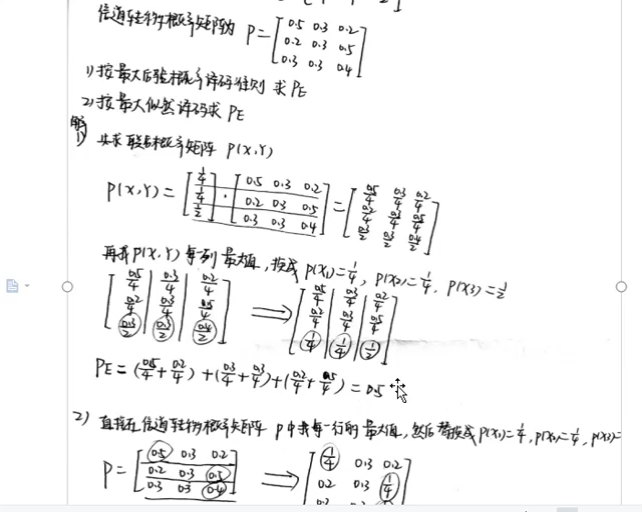 信道转移概率矩阵为 P = [0.5 0.3 0.2
0.2 0.3 0.5
0.3 0.3 0.4]
1) 按最大后验概率译码准则 求 PE
2) 按最大似然译码求 PE
解
1) 先求联合概率矩阵 P(X,Y)
P(X,Y) = [1/4 1/4 1/2] · [0.5 0.3 0.2 / 0.2 0.3 0.5 / 0.3 0.3 0.4] = [0.5/4 0.3/4 0.2/4 / 0.2/4 0.3/4 0.5/4 / 0.3/2 0.3/2 0.4/2]
再求P(X,Y)每列最大值,换成 P(X1)=1/4, P(X2)=1/4, P(X3)=1/2
[0.5/4 | 0.3/4 | 0.2/4 / 0.2/4 | 0.3/4 | 0.5/4 / 0.3/2 | 0.3/2 | 0.4/2] ⟹ [0.5/4 | 0.3/4 | 0.2/4 / 0.2/4 | 0.3/4 | 0.5/4 / 1/4 | 1/4 | 1/2]
PE = (0.5/4 + 0.2/4) + (0.3/4 + 0.3/4) + (0.2/4 + 0.5/4) = 0.5
2) 直接在信道转移概率矩阵 P中求每一行的最大值,然后替换成P(X1)=1/4, P(X2)=1/4, P(X3)=
P = [0.5 0.3 0.2 / 0.2 0.3 0.5 / 0.3 0.3 0.4] ⟹ [1/4 0.3 0.2 / 0.2 0.3 1/4